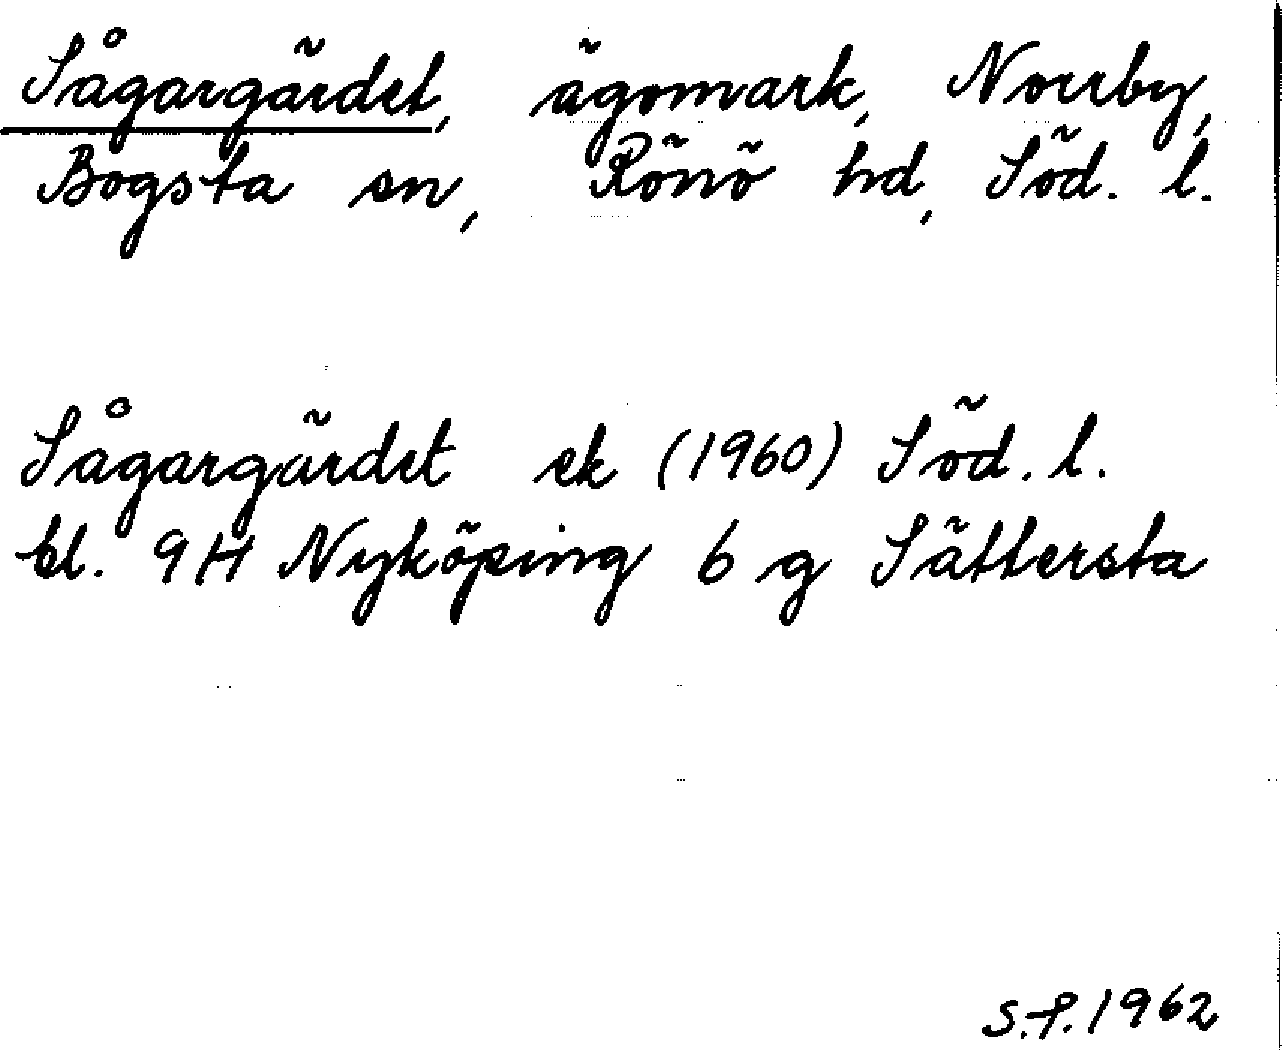 Sågargärdet, ägomark, Norrby,
Bogsta sn, Rönö hd, Söd. l.
Sågargärdet ek (1960) Söd. l.
bl. 9H Nyköping 6 g Sättersta
S.P. 1962